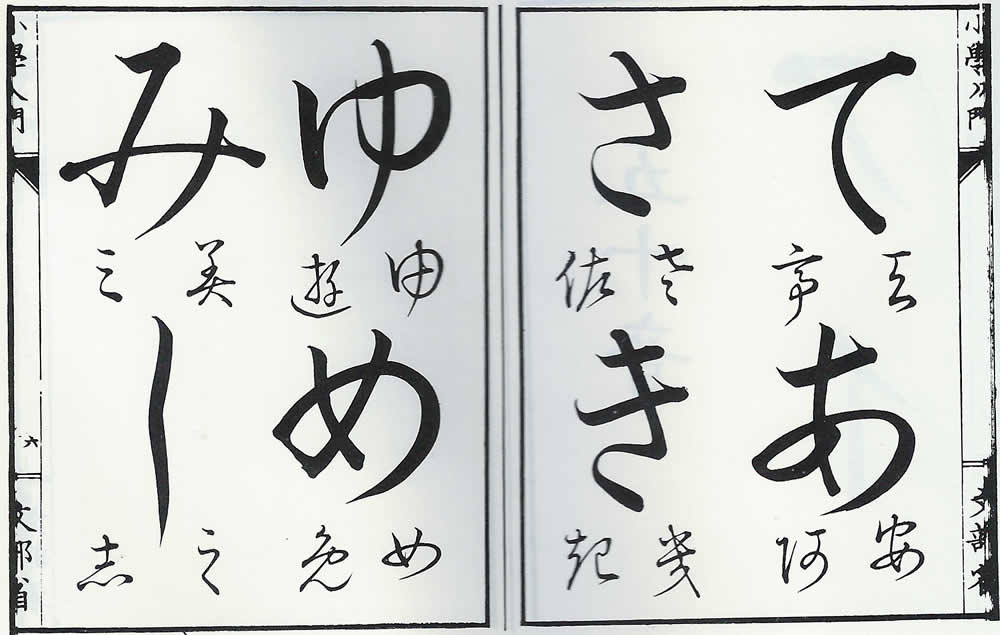 小學入門
文部省
て
天 亭
あ
安 阿
さ
左 佐
き
幾 起
ゆ
由 遊
め
女 免
み
美 三
し
之 志
小學入門
六
文部省